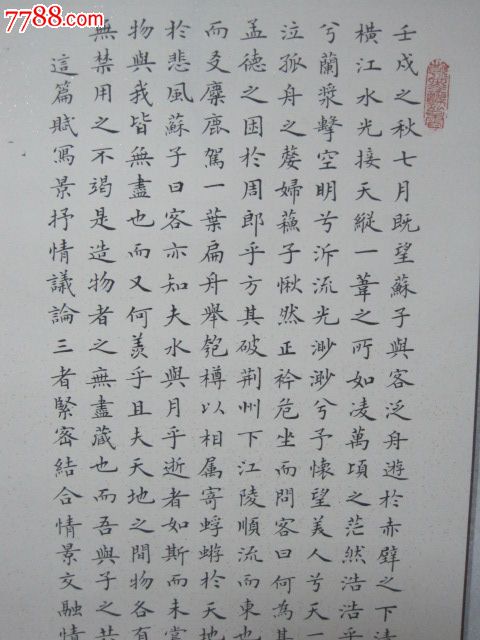 7788.com
壬戌之秋七月既望蘇子與客泛舟遊於赤壁之下清
橫江水光接天縱一葦之所如凌萬頃之茫然浩浩乎
兮蘭漿擊空明兮泝流光渺渺兮予懷望美人兮天一
泣孤舟之嫠婦蘇子愀然正衿危坐而問客曰何為其
孟德之困於周郎乎方其破荊州下江陵順流而東也
而友麋鹿駕一葉扁舟舉匏樽以相属寄蜉蝣於天地
於悲風蘇子曰客亦知夫水與月乎逝者如斯而未嘗
物與我皆無盡也而又何羨乎且夫天地之間物各有
無禁用之不竭是造物者之無盡藏也而吾與子之共
這篇賦寫景抒情議論三者緊密結合情景交融情